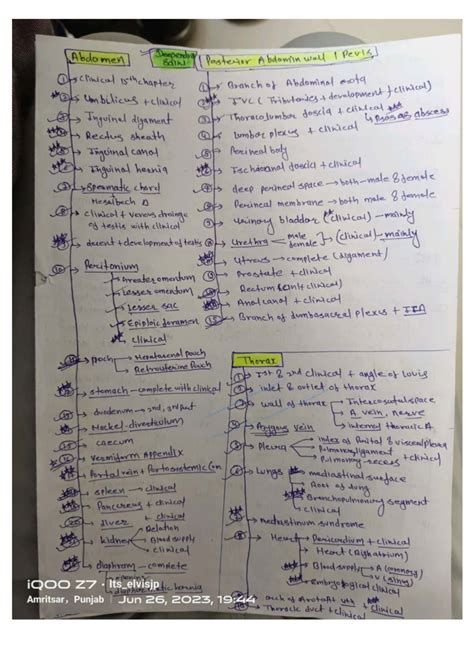 Abdomen
① → Clinical 15th chapter
② → Umbilicus + clinical
③ → Inguinal digament
④ → Rectus sheath
⑤ → Inguinal canal
⑥ → Inguinal hernia
⑦ → Spermatic chord
Hesselbech Δ
⑧ → clinical + venous drainage
of testis with clinical
⑨ → decent + development of testis
⑩ → Peritonium
→ Greater omentum
→ Lesser omentum
→ Lesser sac
→ Epiploic foramen
→ clinical
→ Poch → Hepatorenal pouch
→ Retrouterine Pouch
→ stomach - complete with clinical
→ duodenum → 2nd,
→ Meckel-diveticulum
→ caecum
→ Vermiform appendix
→ Portal vein + Portosystemic
→ spleen - clinical
→ Pancreas + clinical
→ Liver + clinical
→ Relation
→ Kidney → Blood supply
→ clinical
→ diaphram - complete
hernia
Posterior Abdomin wall / Pevis
① → Branch of Abdominal aorta
② → IVC (Tributories + development + clinical)
③ → Thoracolumbar fascia + clinical
↳ Psoas abscess
④ → lumbar plexus + clinical
⑤ → Perineal body
⑥ → Ischioanal fascia + clinical
⑦ → deep perineal space → both - male & female
⑧ → Perineal membrane → both male & female
→ Urinary bladder (clinical) - mainly
→ Urethra → male
female } → (clinical) - mainly
→ Utrows → complete (ligament)
→ Prostate + clinical
→ Rectum + clinical
→ Anal canal + clinical
⑮ → Branch of lumbosacral plexus +
Thorax
① → 1st & 2nd clinical + angle of Louis
② → inlet & outlet of thorax
③ → wall of thorax → Intercostal space
→ A. vein, nerve
→ internal thoracic A.
④ → Azygus vein
⑤ → Pleura → index of Parital & visceral pleura
→ Pulmonary ligament
→ Pulmonary recess + clinical
⑥ → Lungs → mediastinal surface
→ Root of lung
→ Bronchopulmonary segment
→ clinical
→ Mediastinum syndrome
→ Heart → Pericardium + clinical
→ Heart (Right atrium)
→ Blood supply → A (coronary)
→ V (sinus)
→ embryological clinical
→ arch of Aorta + clinical
→ Thoracic duct + clinical
iQOO Z7 · its_elvisjp
Amritsar, Punjab | Jun 26, 2023, 19:44